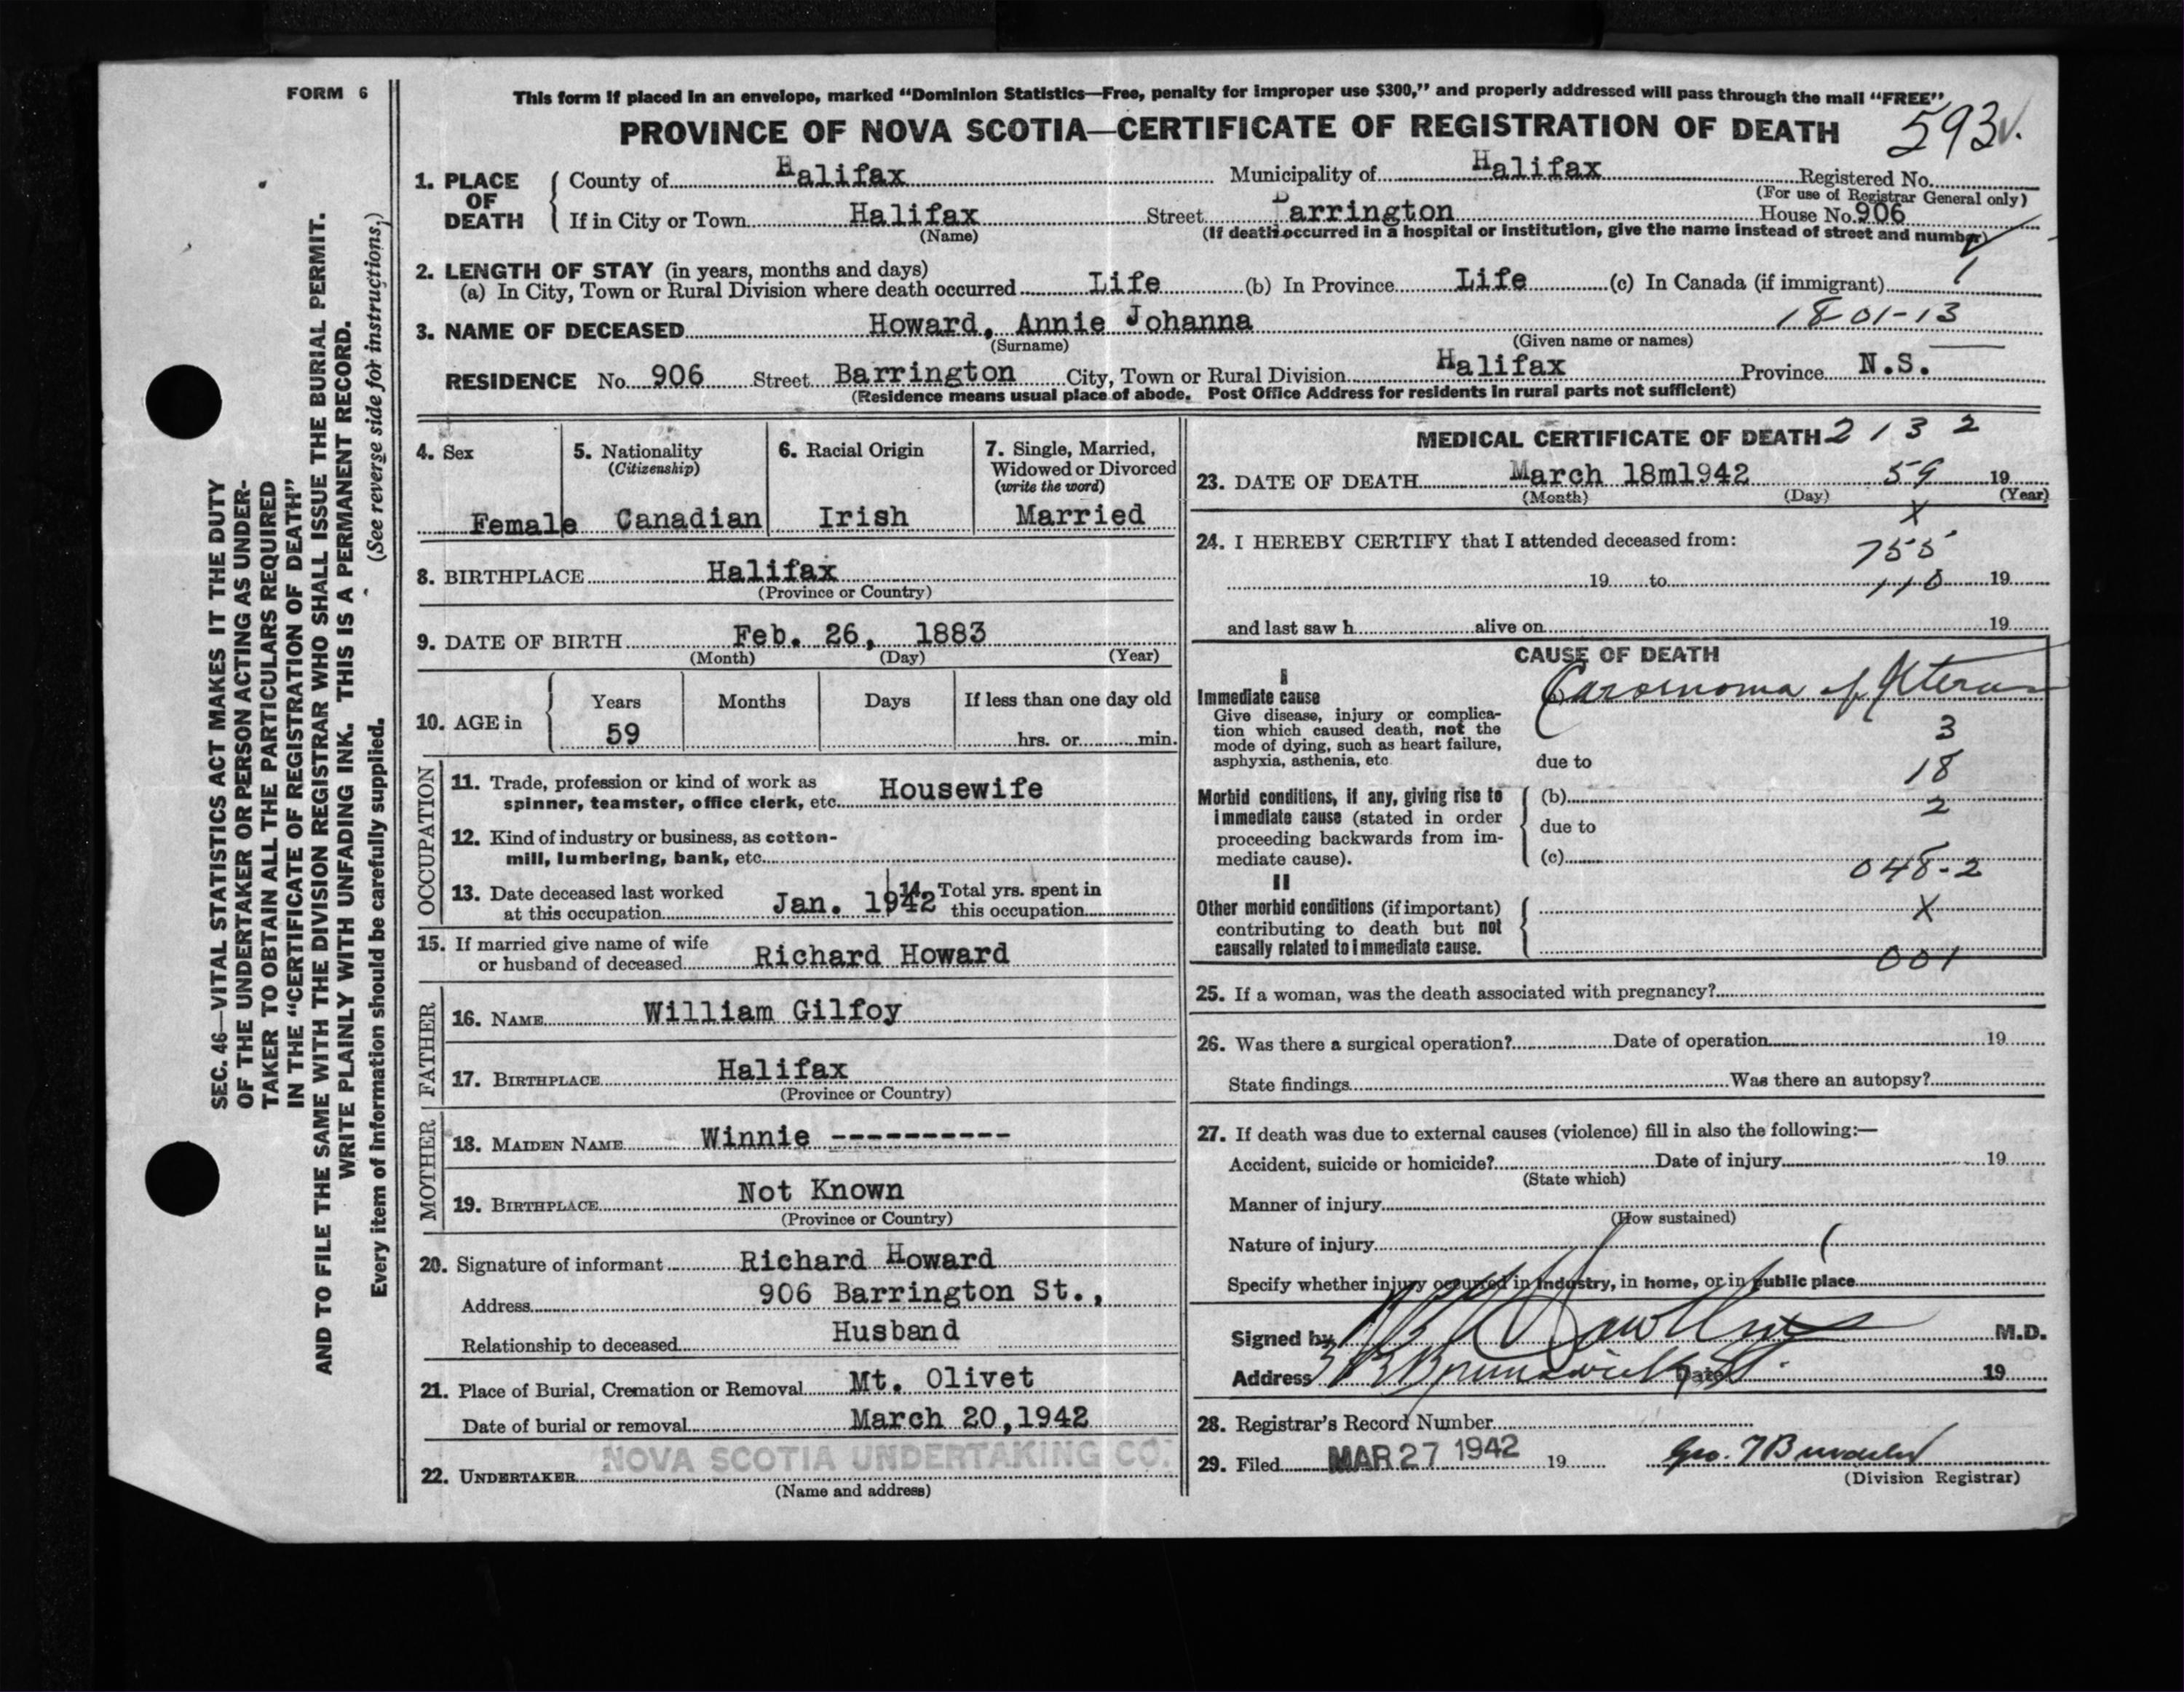 FORM 6
This form if placed in an envelope, marked “Dominion Statistics—Free, penalty for improper use $300,” and properly addressed will pass through the mail “FREE”
PROVINCE OF NOVA SCOTIA—CERTIFICATE OF REGISTRATION OF DEATH
593
1. PLACE OF DEATH
County of Halifax Municipality of Halifax Registered No.
(For use of Registrar General only)
If in City or Town Halifax Street Barrington House No. 906
(Name) (If death occurred in a hospital or institution, give the name instead of street and number)
2. LENGTH OF STAY (in years, months and days)
(a) In City, Town or Rural Division where death occurred Life (b) In Province Life (c) In Canada (if immigrant) 1
3. NAME OF DECEASED Howard, Annie Johanna 1801-13
(Surname) (Given name or names)
RESIDENCE No. 906 Street Barrington City, Town or Rural Division Halifax Province N.S.
(Residence means usual place of abode. Post Office Address for residents in rural parts not sufficient)
4. Sex
Female
5. Nationality
(Citizenship)
Canadian
6. Racial Origin
Irish
7. Single, Married,
Widowed or Divorced
(write the word)
Married
8. BIRTHPLACE Halifax
(Province or Country)
9. DATE OF BIRTH Feb. 26, 1883
(Month) (Day) (Year)
10. AGE in
Years Months Days If less than one day old
59 hrs. or min.
OCCUPATION
11. Trade, profession or kind of work as
spinner, teamster, office clerk, etc. Housewife
12. Kind of industry or business, as cotton-
mill, lumbering, bank, etc.
13. Date deceased last worked
at this occupation Jan. 1942
14. Total yrs. spent in
this occupation
15. If married give name of wife
or husband of deceased Richard Howard
FATHER
16. NAME William Gilfoy
17. BIRTHPLACE Halifax
(Province or Country)
MOTHER
18. MAIDEN NAME Winnie ----------
19. BIRTHPLACE Not Known
(Province or Country)
20. Signature of informant Richard Howard
Address 906 Barrington St.,
Relationship to deceased Husband
21. Place of Burial, Cremation or Removal Mt. Olivet
Date of burial or removal March 20,1942
NOVA SCOTIA UNDERTAKING CO.
22. UNDERTAKER
(Name and address)
MEDICAL CERTIFICATE OF DEATH 2132
23. DATE OF DEATH March 18m1942 59 19
(Month) (Day) (Year)
X
24. I HEREBY CERTIFY that I attended deceased from:
755
19 to 110 19
and last saw h alive on 19
CAUSE OF DEATH
I
Immediate cause
Carcinoma of Uterus
Give disease, injury or complica-
tion which caused death, not the
mode of dying, such as heart failure,
asphyxia, asthenia, etc.
3
due to
18
Morbid conditions, if any, giving rise to
immediate cause (stated in order
proceeding backwards from im-
mediate cause).
(b)
2
due to
(c)
048-2
II
Other morbid conditions (if important)
contributing to death but not
causally related to immediate cause.
X
001
25. If a woman, was the death associated with pregnancy?
26. Was there a surgical operation? Date of operation 19
State findings Was there an autopsy?
27. If death was due to external causes (violence) fill in also the following:—
Accident, suicide or homicide? Date of injury 19
(State which)
Manner of injury
(How sustained)
Nature of injury
Specify whether injury occurred in industry, in home, or in public place
Signed by M.D.
Address Brunswick St. Date 19
28. Registrar's Record Number
29. Filed MAR 27 1942 19
(Division Registrar)
SEC. 46—VITAL STATISTICS ACT MAKES IT THE DUTY
OF THE UNDERTAKER OR PERSON ACTING AS UNDER-
TAKER TO OBTAIN ALL THE PARTICULARS REQUIRED
IN THE “CERTIFICATE OF REGISTRATION OF DEATH”
AND TO FILE THE SAME WITH THE DIVISION REGISTRAR WHO SHALL ISSUE THE BURIAL PERMIT.
WRITE PLAINLY WITH UNFADING INK. THIS IS A PERMANENT RECORD.
Every item of information should be carefully supplied. (See reverse side for instructions.)